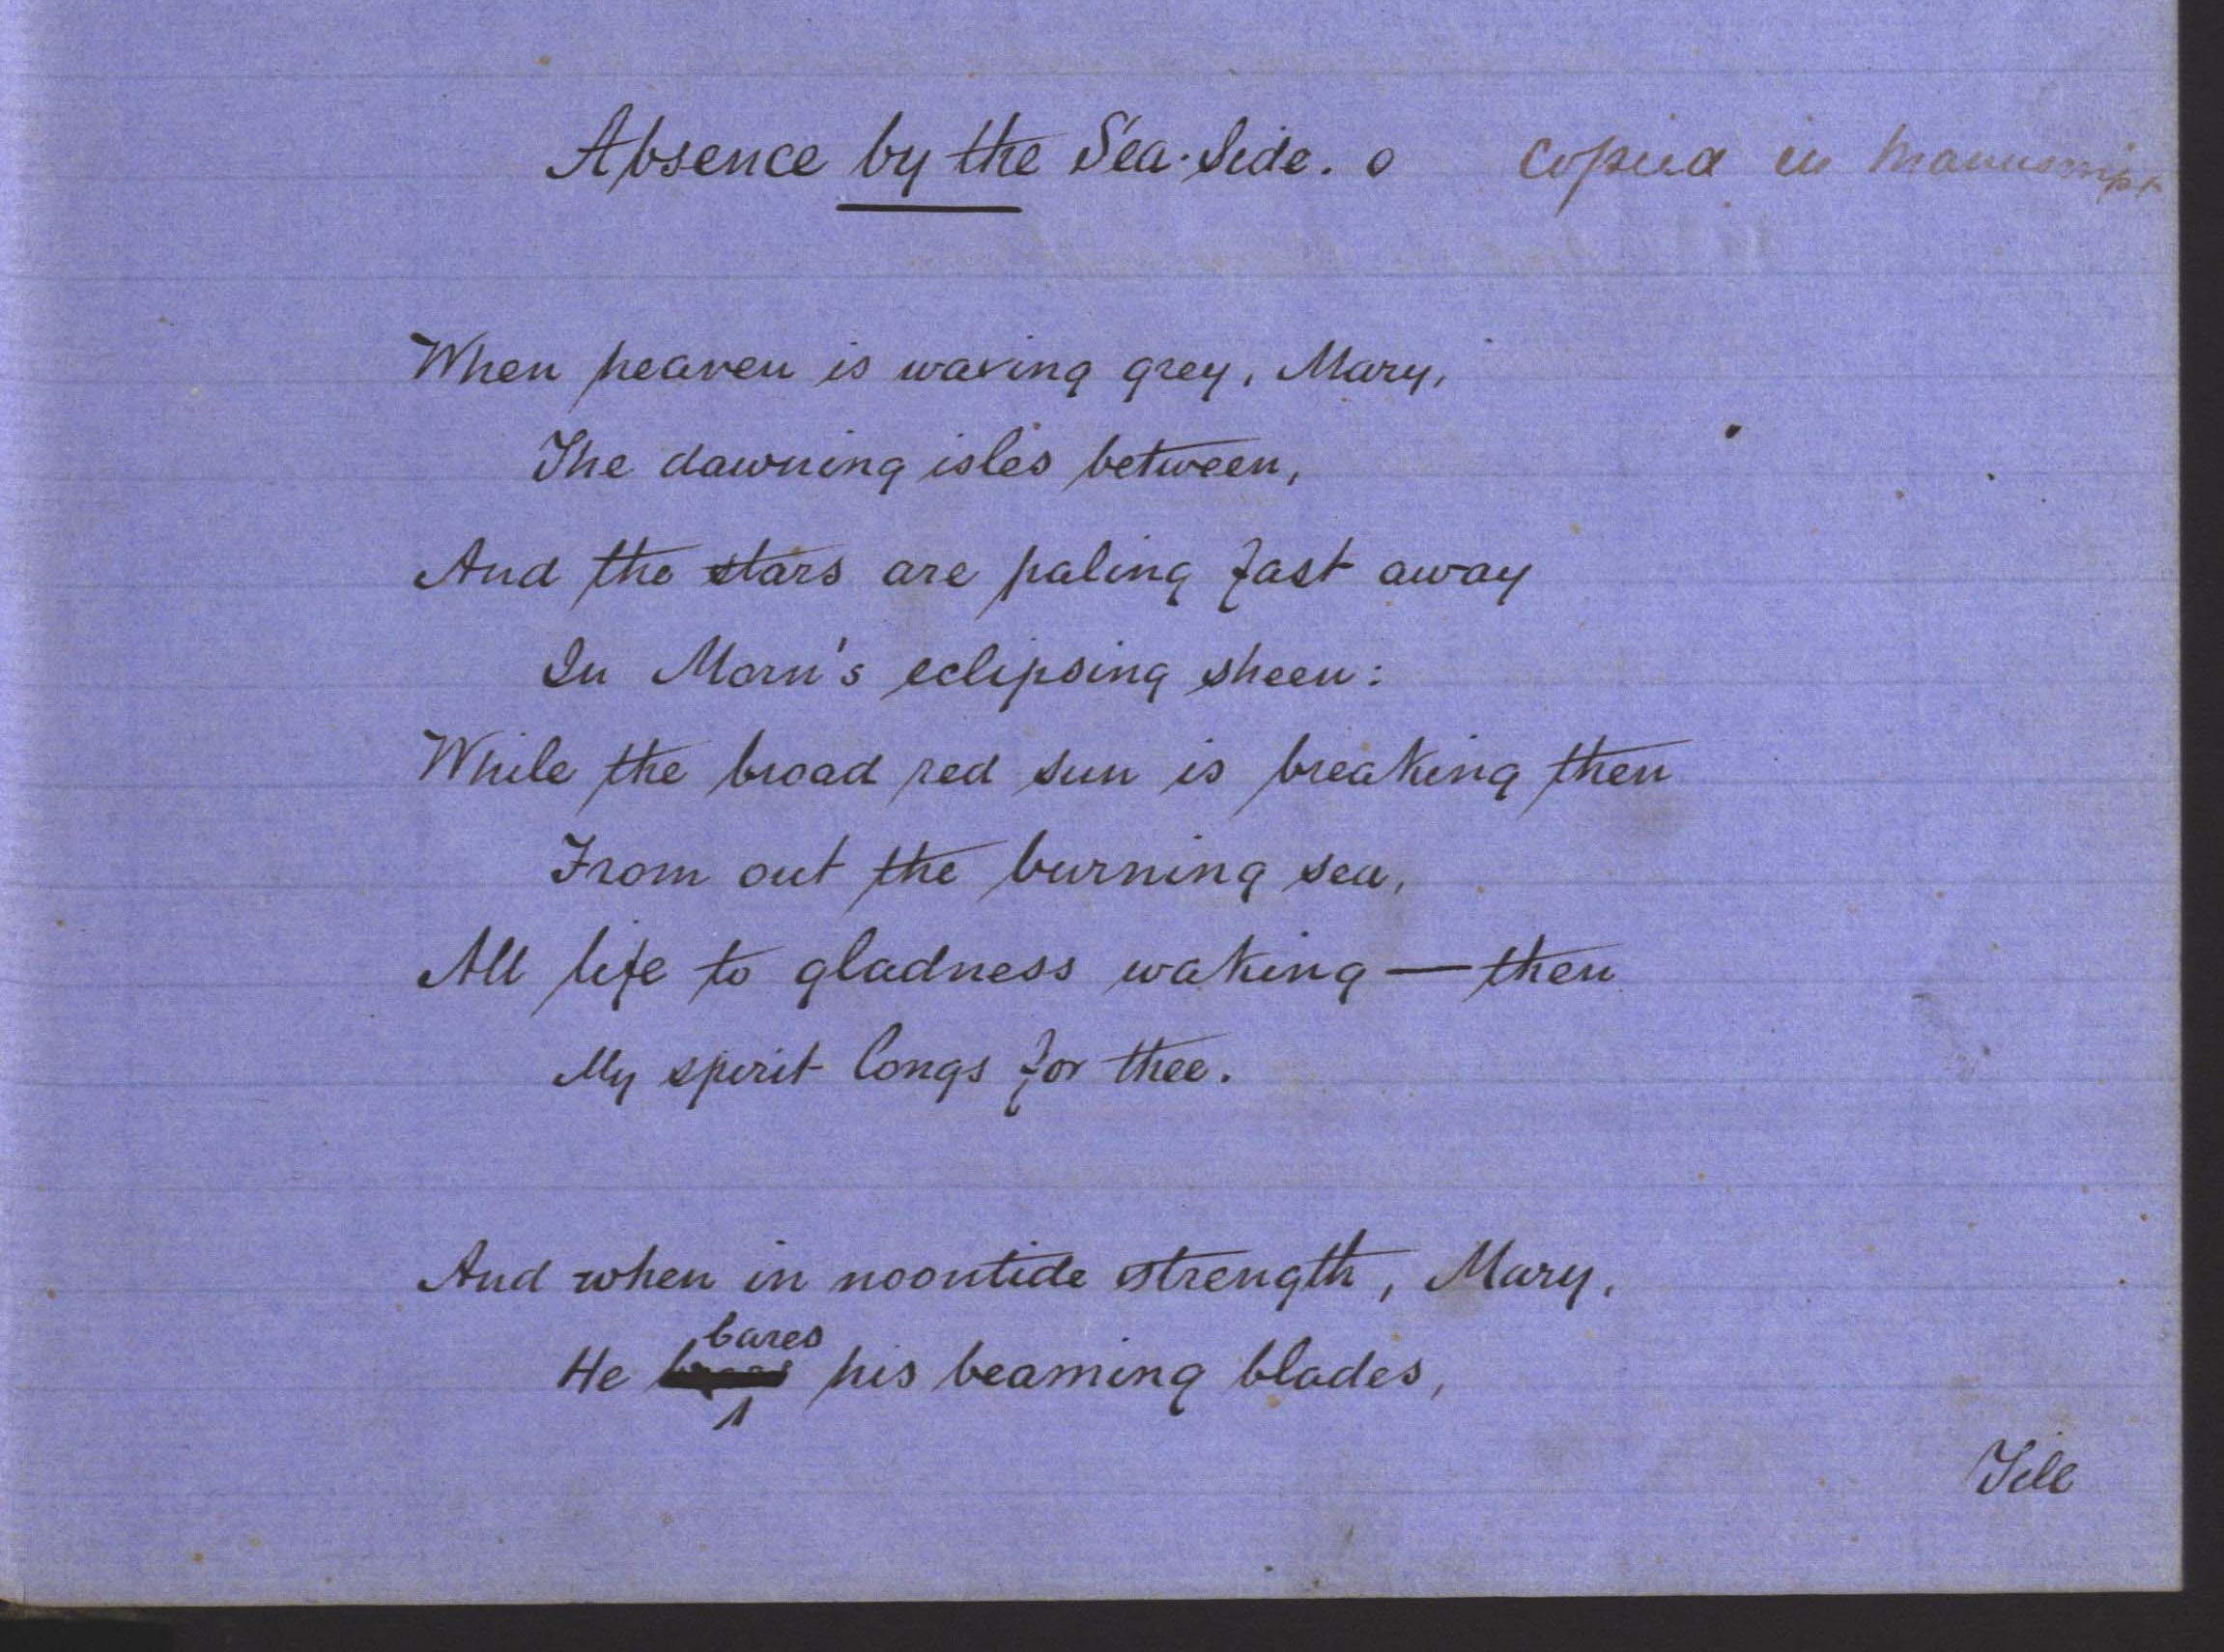 Absence by the Sea-Side. o copied in Manuscript
When heaven is waxing grey, Mary,
The dawning isles between,
And the stars are paling fast away
In Morn's eclipsing sheen:
While the broad red sun is breaking then
From out the burning sea,
All life to gladness waking — then
My spirit longs for thee.
And when in noontide strength, Mary,
bares
He his beaming blades,
Till